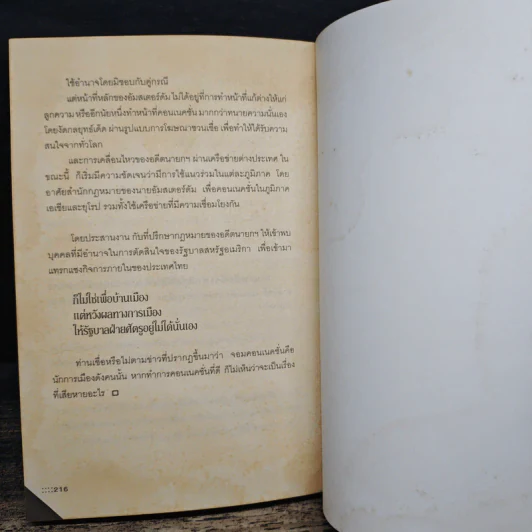 ใช้อำนาจโดยมิชอบกับคู่กรณี
แต่หน้าที่หลักของอัมสเตอร์ดัม ไม่ได้อยู่ที่การทำหน้าที่แก้ต่างให้แก่
ลูกความ หรืออีกนัยหนึ่งทำหน้าที่คอนเนคชั่น มากกว่าทนายความนั่นเอง
โดยงัดกลยุทธ์เด็ด ผ่านรูปแบบการโฆษณาชวนเชื่อ เพื่อทำให้ได้รับความ
สนใจจากทั่วโลก
และการเคลื่อนไหวของอดีตนายกฯ ผ่านเครือข่ายต่างประเทศ ใน
ขณะนี้ ก็เริ่มมีความชัดเจนว่ามีการใช้แนวร่วมในแต่ละภูมิภาค โดย
อาศัยสำนักกฎหมายของนายอัมสเตอร์ดัม เพื่อคอนเนคชั่นในภูมิภาค
เอเชียและยุโรป รวมทั้งใช้เครือข่ายที่มีความเชื่อมโยงกัน
โดยประสานงาน กับที่ปรึกษากฎหมายของอดีตนายกฯ ให้เข้าพบ
บุคคลที่มีอำนาจในการตัดสินใจของรัฐบาลสหรัฐอเมริกา เพื่อเข้ามา
แทรกแซงกิจการภายในของประเทศไทย
ก็ไม่ใช่เพื่อบ้านเมือง
แต่หวังผลทางการเมือง
ให้รัฐบาลฝ่ายศัตรูอยู่ไม่ได้นั่นเอง
ท่านเชื่อหรือไม่ตามข่าวที่ปรากฏขึ้นมาว่า จอมคอนเนคชั่นคือ
นักการเมืองดังคนนั้น หากทำการคอนเนคชั่นที่ดี ก็ไม่เห็นว่าจะเป็นเรื่อง
ที่เสียหายอะไร
216